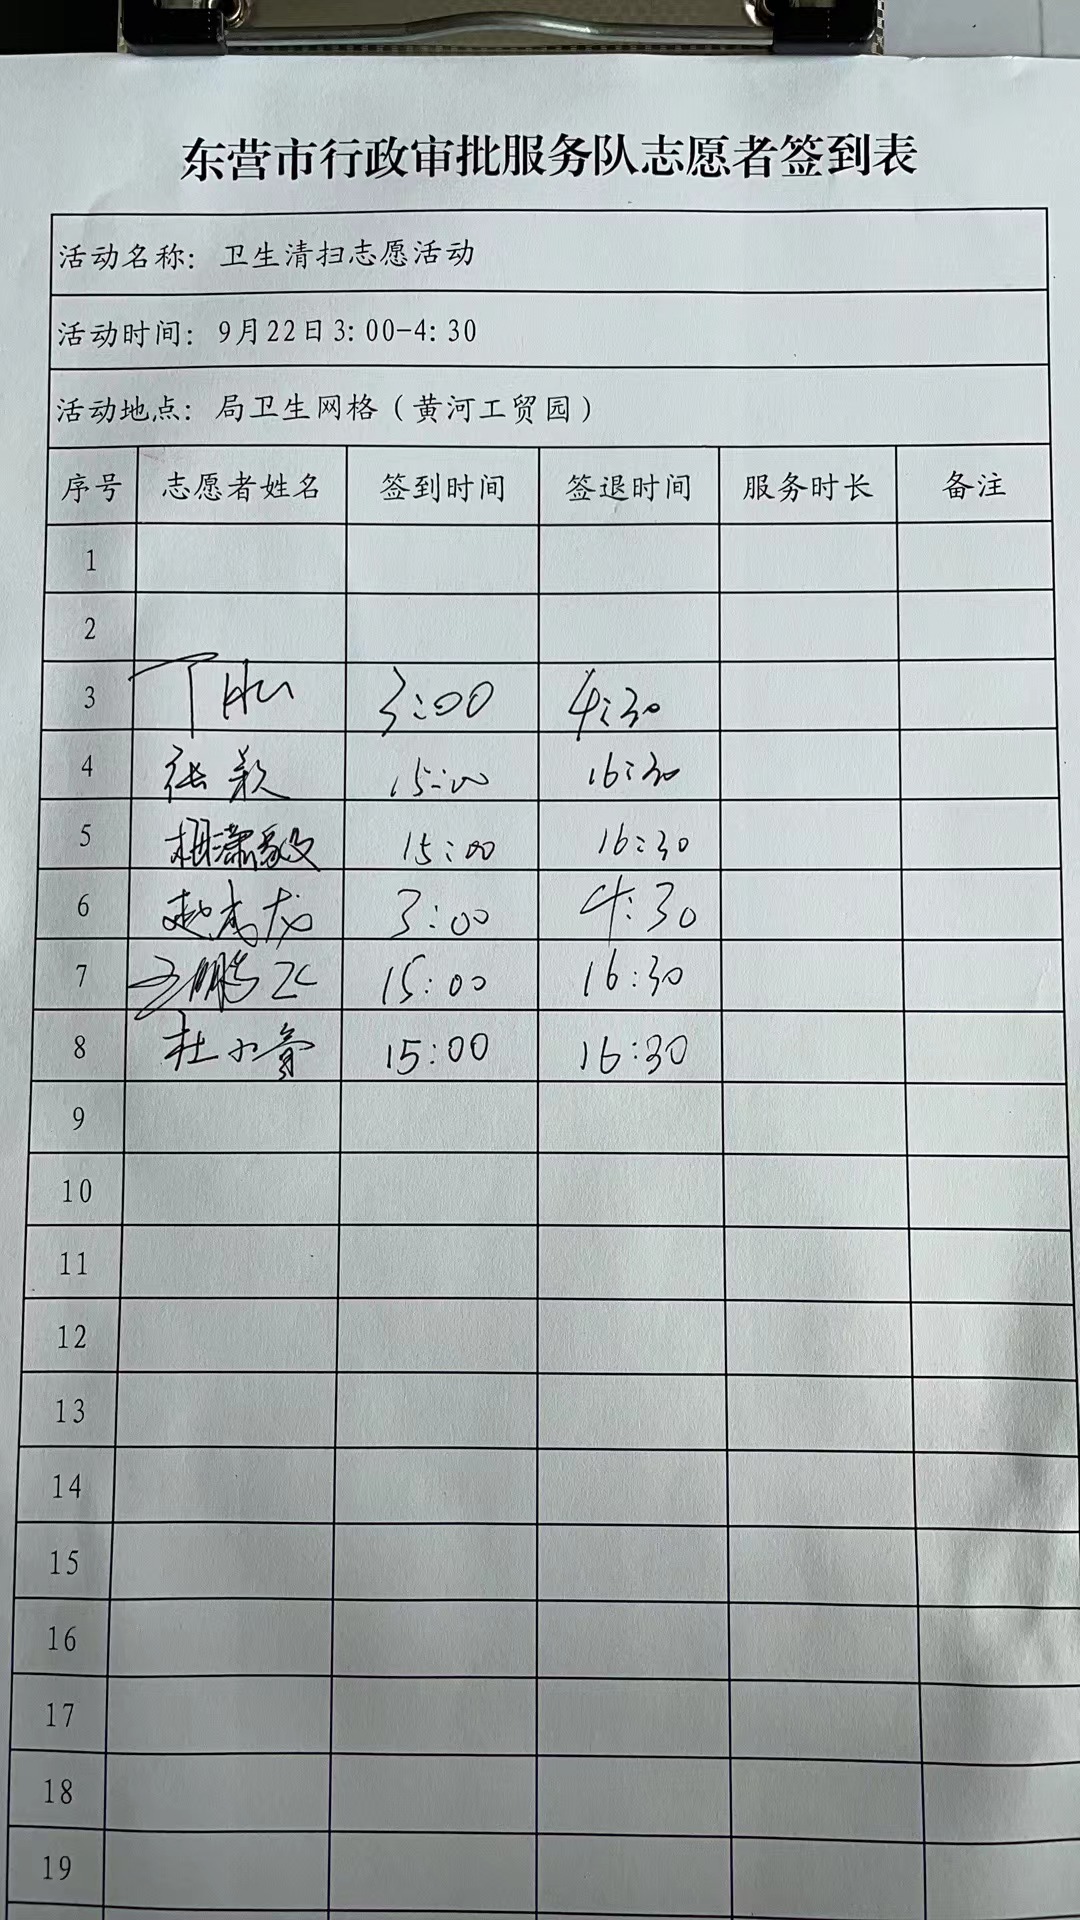 东营市行政审批服务队志愿者签到表
活动名称：卫生清扫志愿活动
活动时间：9月22日3：00-4：30
活动地点：局卫生网格（黄河工贸园）
序号 志愿者姓名 签到时间 签退时间 服务时长 备注
1
2
3 3:00 4:30
4 张 15:00 16:30
5 15:00 16:30
6 赵 龙 3:00 4:30
7 鹏 15:00 16:30
8 杜小 15:00 16:30
9
10
11
12
13
14
15
16
17
18
19